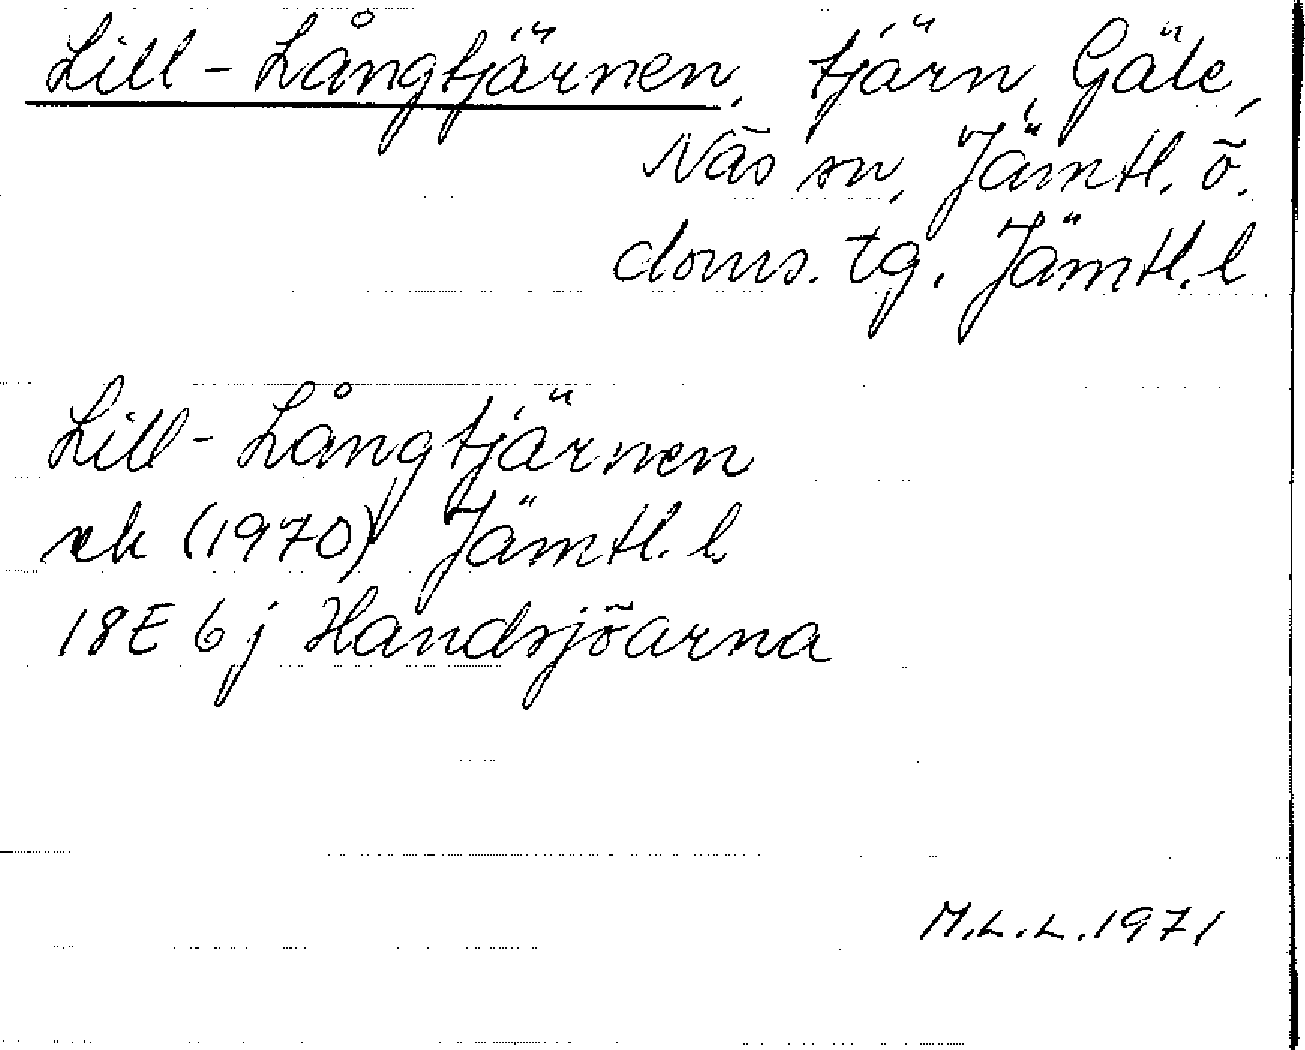 Lill-Långtjärnen, tjärn, Gäle,
Näs sn, Jämtl. ö.
doms. tg. Jämtl. l
Lill-Långtjärnen
ek (1970) Jämtl. l.
18E 6j Handsjöarna
M.L.L. 1971